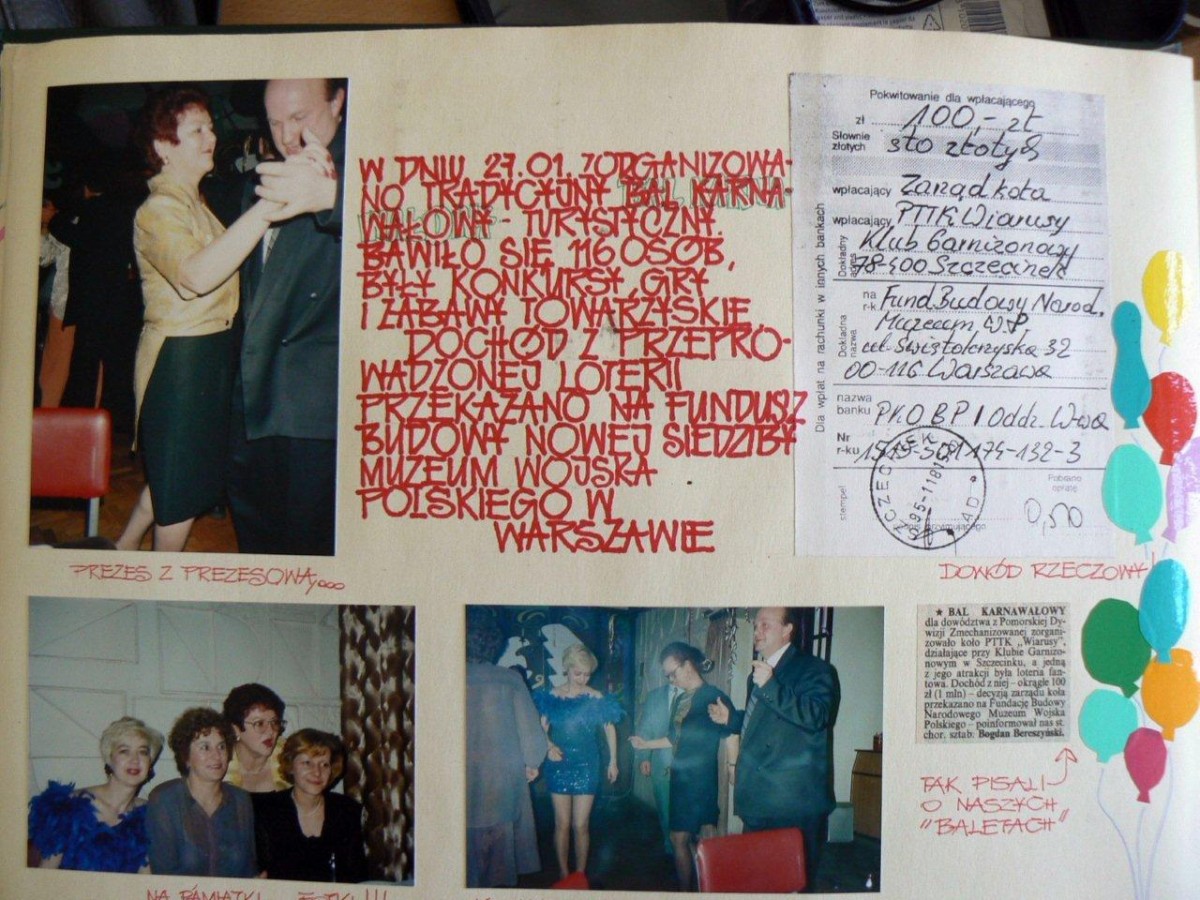 W DNIU 27.01. ZORGANIZOWA-
NO TRADYCYJNY BAL KARNA-
WAŁOWY - TURYSTYCZNY.
BAWIŁO SIĘ 116 OSÓB,
BYŁY KONKURSY, GRY
I ZABAWY TOWARZYSKIE
DOCHÓD Z PRZEPRO-
WADZONEJ LOTERII
PRZEKAZANO NA FUNDUSZ
BUDOWY NOWEJ SIEDZIBY
MUZEUM WOJSKA
POLSKIEGO W
WARSZAWIE
Pokwitowanie dla wpłacającego
zł 100,- zł
Słownie złotych sto złotych
wpłacający Zarząd koła
wpłacający PTTK Wiarusy
Dokładny adres Klub Garnizonowy
78-400 Szczecinek
na r-k Fund. Budowy Narod.
Dokładna nazwa Muzeum W.P.
ul. Świętokrzyska 32
00-116 Warszawa
nazwa banku PKO BP I Oddz. W-wa
Nr r-ku
174-132-3
Dla wpłat na rachunki w innych bankach
stempel
Pobrano opłatę
0,50
SZCZECINEK
PREZES Z PREZESOWĄ...
DOWÓD RZECZOWY!
★ BAL KARNAWAŁOWY
dla dowództwa z Pomorskiej Dy-
wizji Zmechanizowanej zorgani-
zowało koło PTTK „Wiarusy",
działające przy Klubie Garnizo-
nowym w Szczecinku, a jedną
z jego atrakcji była loteria fan-
towa. Dochód z niej - okrągłe 100
zł (1 mln) - decyzją zarządu koła
przekazano na Fundację Budowy
Narodowego Muzeum Wojska
Polskiego - poinformował nas st.
chor. sztab. Bogdan Bereszyński.
TAK PISALI
O NASZYCH
"BALETACH"
NA PAMIĄTKI